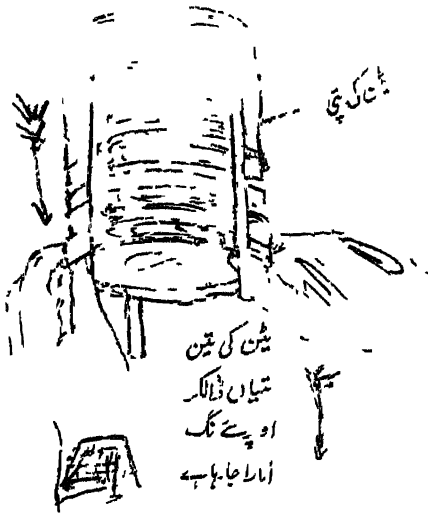 ٹین کی پتی
ٹین کی تین
پتیاں ڈالکر
اوپر سے نگ
اتارا جا رہا ہے